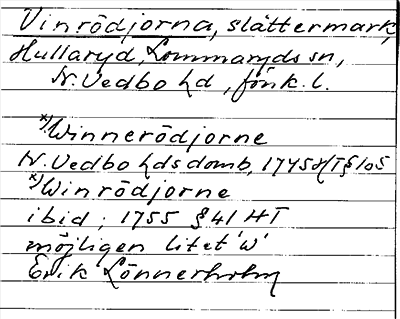 Vinrödjorna, slåttermark,
Hullaryd, Lommaryds sn,
N. Vedbo hd, Jönk. l.
x) Winnerödjorne
N. Vedbo hds domb, 1745 HT § 105
x) Winrödjorne
ibid; 1755 § 41 HT
möjligen litet 'w'
Erik Lönnerholm